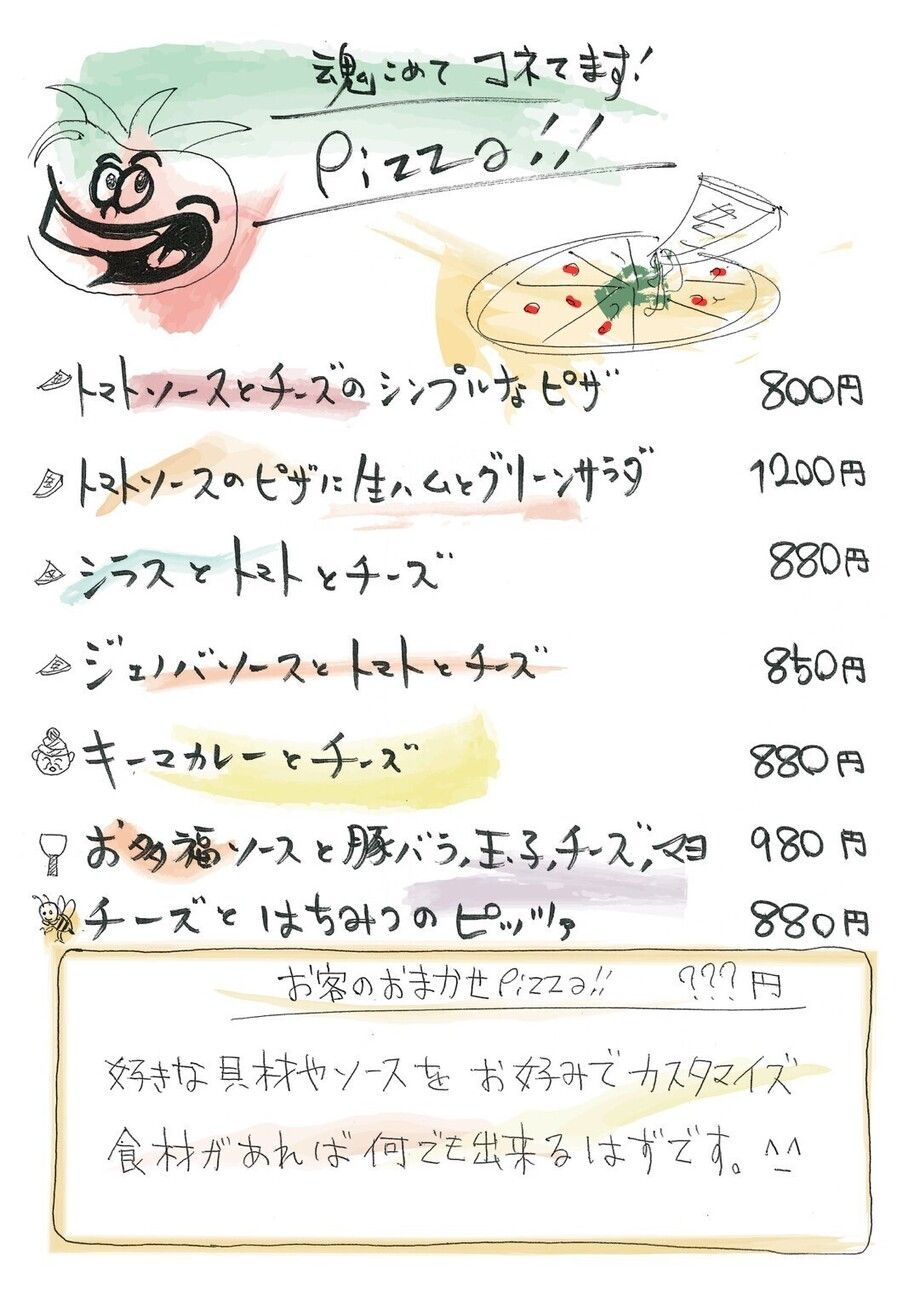 魂こめて コネてます!
Pizza!!
トマトソースとチーズのシンプルなピザ 800円
トマトソースのピザに生ハムとグリーンサラダ 1200円
シラスとトマトとチーズ 880円
ジェノバソースとトマトとチーズ 850円
キーマカレーとチーズ 880円
お多福ソースと豚バラ,玉子,チーズ,マヨ 980円
チーズとはちみつのピッツァ 880円
お客のおまかせPizza!! ???円
好きな具材やソースを お好みでカスタマイズ
食材があれば何でも出来るはずです。^_^